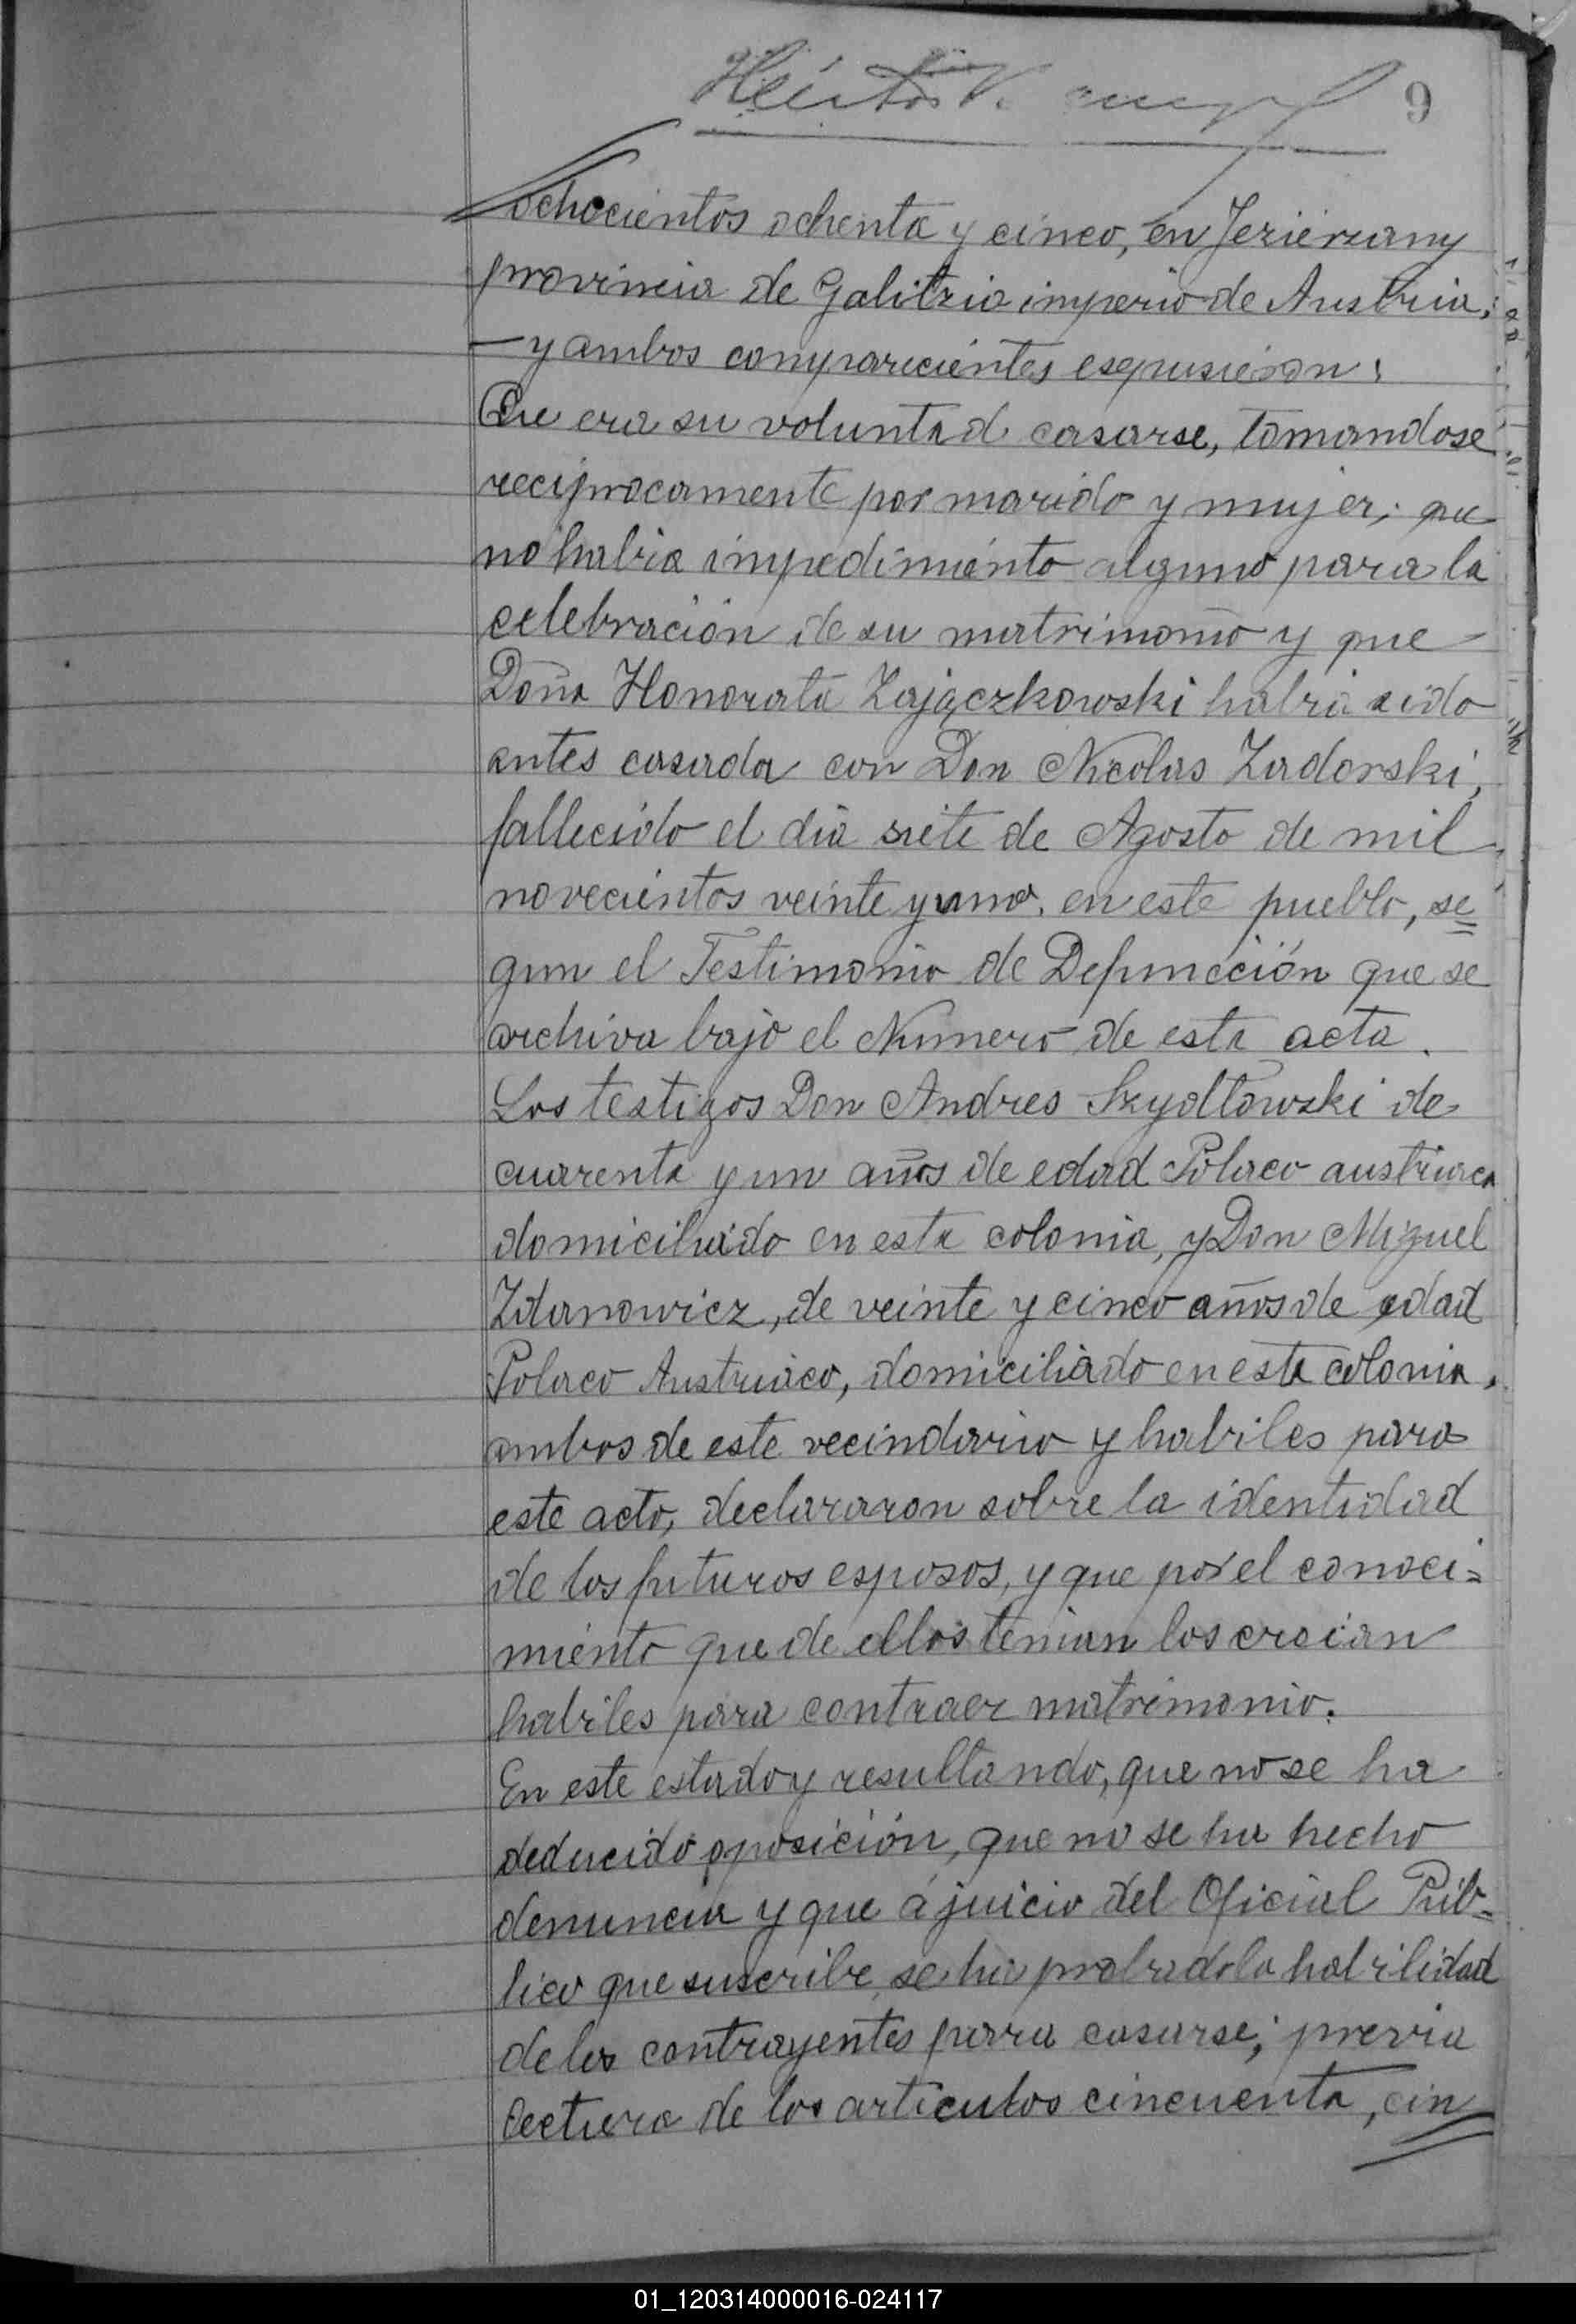 9
ochocientos ochenta y cinco, en Jezierzany
provincia de Galitzia imperio de Austria,
— y ambos comparecientes esepusieron:
Que era su voluntad casarse, tomandose
reciprocamente por marido y mujer; que
no habia impedimiento alguno para la
celebración de su matrimonio y que
Doña Honorata Zajączkowski habia sido
antes casada con Don Nicolas Zadorski,
fallecido el dia siete de Agosto de mil
novecientos veinte y uno, en este pueblo, se=
gun el Testimonio de Defuncción que se
archiva bajo el Numero de esta acta.
Los testigos Don Andres Szydłowski de
cuarenta y un años de edad Polaco austriaco
domiciliado en esta colonia, y Don Miguel
Zdanowicz, de veinte y cinco años de edad
Polaco Austriaco, domiciliado en esta colonia,
ambos de este vecindario y habiles para
este acto, declararon sobre la identidad
de los futuros esposos, y que por el conoci=
miento que de ellos tenian los creian
habiles para contraer matrimonio.
En este estado y resultando, que no se ha
deducido oposición, que no se ha hecho
denuncia y que á juicio del Oficial Púb=
lico que suscribe, se ha probado la habilidad
de los contrayentes para casarse; previa
lectura de los articulos cincuenta, cin
01_120314000016-024117